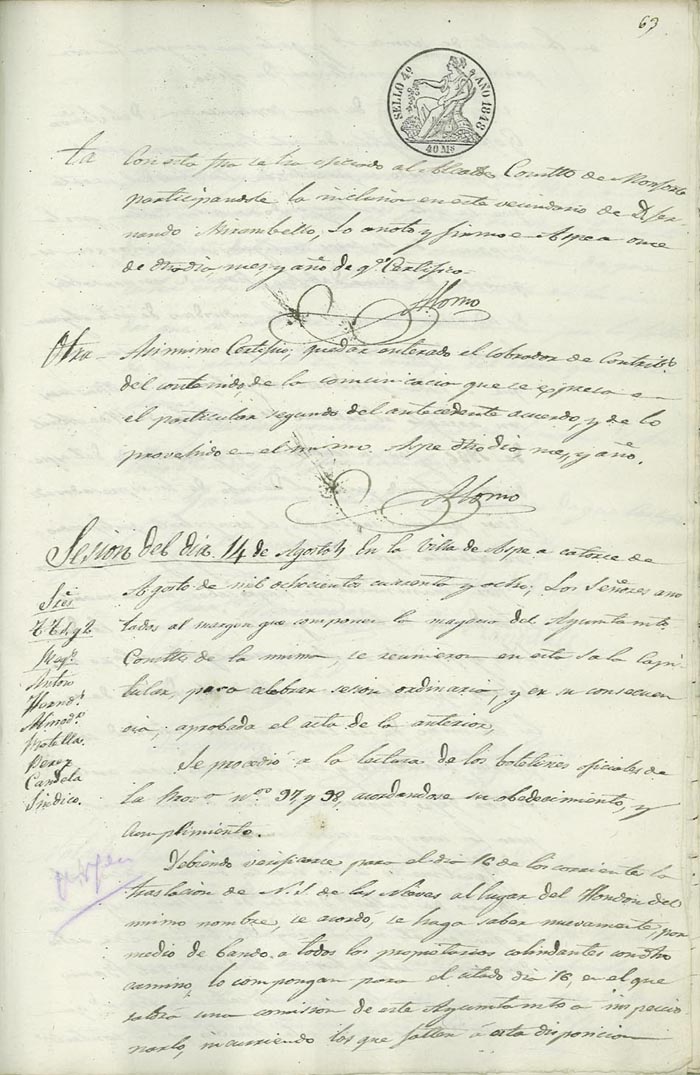 63
SELLO 4º AÑO 1848
40 Ms
ta Con esta fha se ha oficiado al Alcalde Constto de Monforte
participandole la inclusion en este vecindario de D. Fer-
nando Mirambello, Lo anoto y firmo en Aspe a once
de dho dia mes, y año de q.e Certifico.
Alomo
Otra Asimismo Certifico; quedar enterado el Cobrador de Contribs
del contenido, de la comunicacn que se espresa en
el particular segundo del antecedente acuerdo, y de lo
provehido en el mismo. Aspe dho dia, mes, y año.
Alomo
Sesion del dia 14 de Agosto en la Villa de Aspe a catorce de
Agosto de mil ochocientos cuarenta y ocho; Los Señores ano
tados al margen que componen la mayoria del Ayuntamto
Consttl de la misma, se reunieron en esta Sala Capi-
tular, para celebrar sesion ordinaria, y en su consecuen
cia; aprobada el acta de la anterior,
Sres
Antoro
Hernds
Almodr
Botella.
Perez
Candela
Sindico.
Se procedió a la lectura de los boletines oficiales de
la Prov.a nos 97, y 98, acordandose su obedecimiento, y
cumplimiento.
Virgen
Debiendo verificarse para el dia 16 de los corriente la
traslacion de N. S. de las Nieves al lugar del Hondon del
mismo nombre, se acordó, se haga saber nuevamente, por
medio de bando a todos los propietarios colindantes con dho
camino, lo compongan para el citado dia 16, en el que
saldra una comision de este Ayuntamto a inspeccio
narlo, incurriendo los que falten a esta disposicion